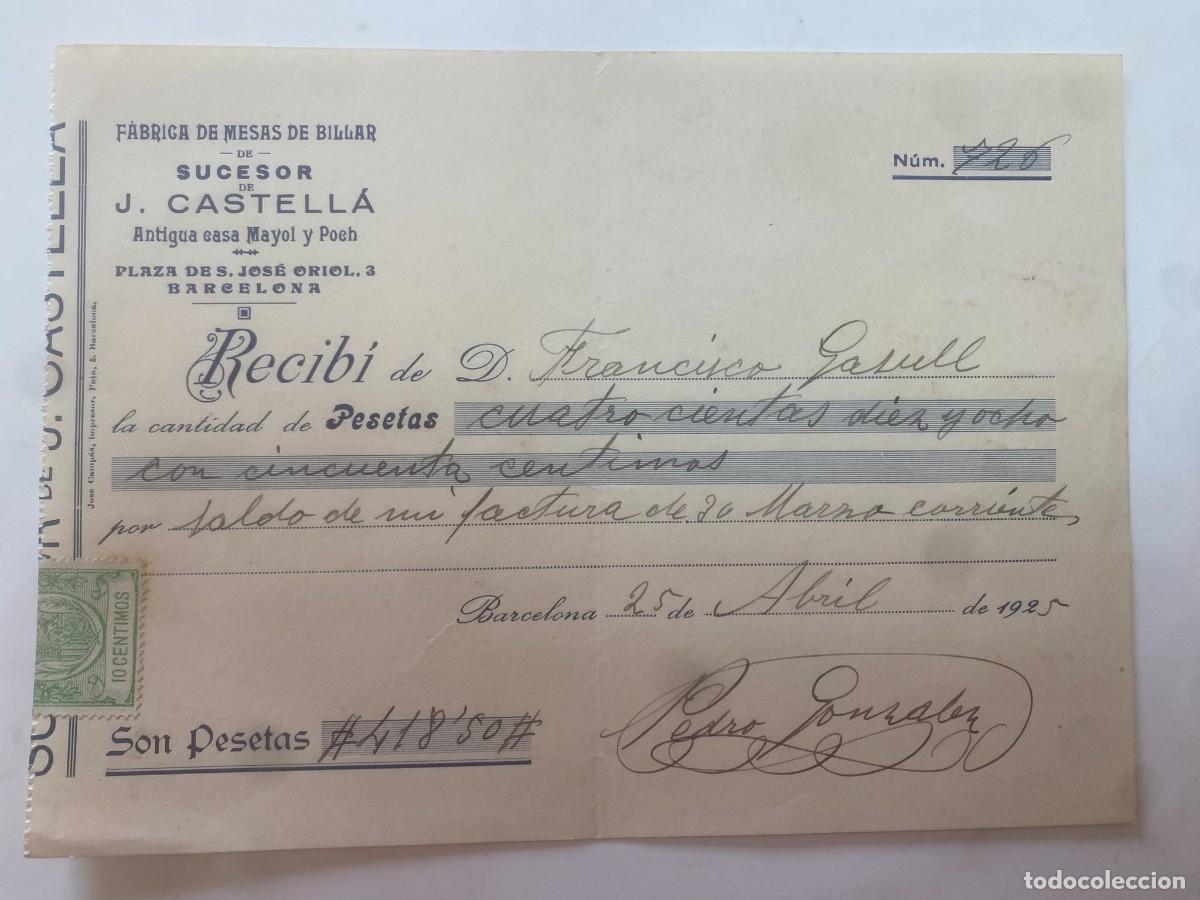 FÁBRICA DE MESAS DE BILLAR
— DE —
SUCESOR
DE
J. CASTELLÁ
Antigua casa Mayol y Poch
PLAZA DE S. JOSÉ ORIOL, 3
BARCELONA
Núm. 726
Recibí de D. Francisco Gasull
la cantidad de Pesetas cuatro cientas diez y ocho
con cincuenta centimos
por saldo de mi factura de 30 Marzo corriente,
Barcelona 25 de Abril de 1925
Son Pesetas #418'50#
Pedro Gonzalez
10 CENTIMOS
J. CASTELLA
Jose Campás, Impresor, Paja, 5. Barcelona.
todocoleccion